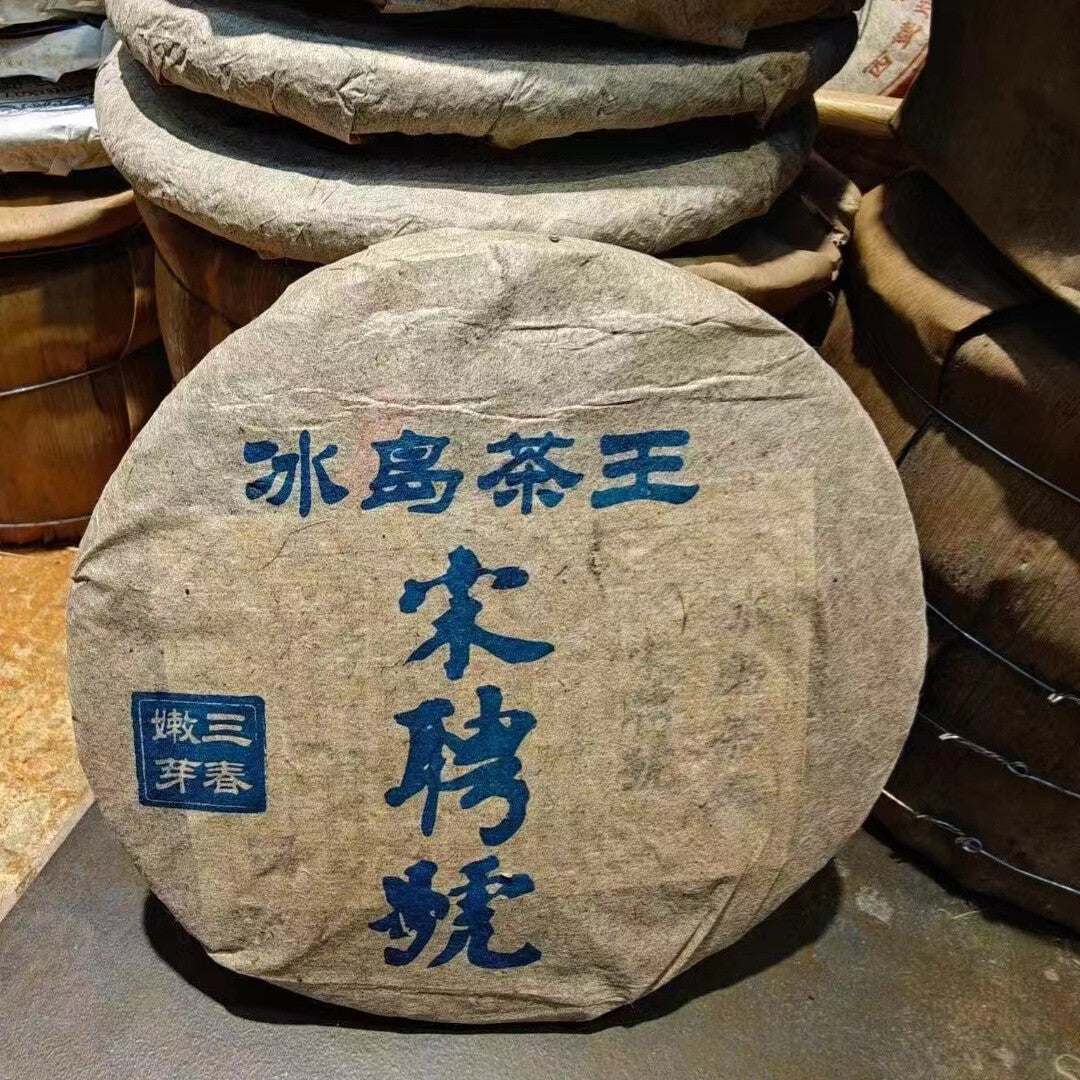 冰島茶王
宋聘號
三春
嫩芽